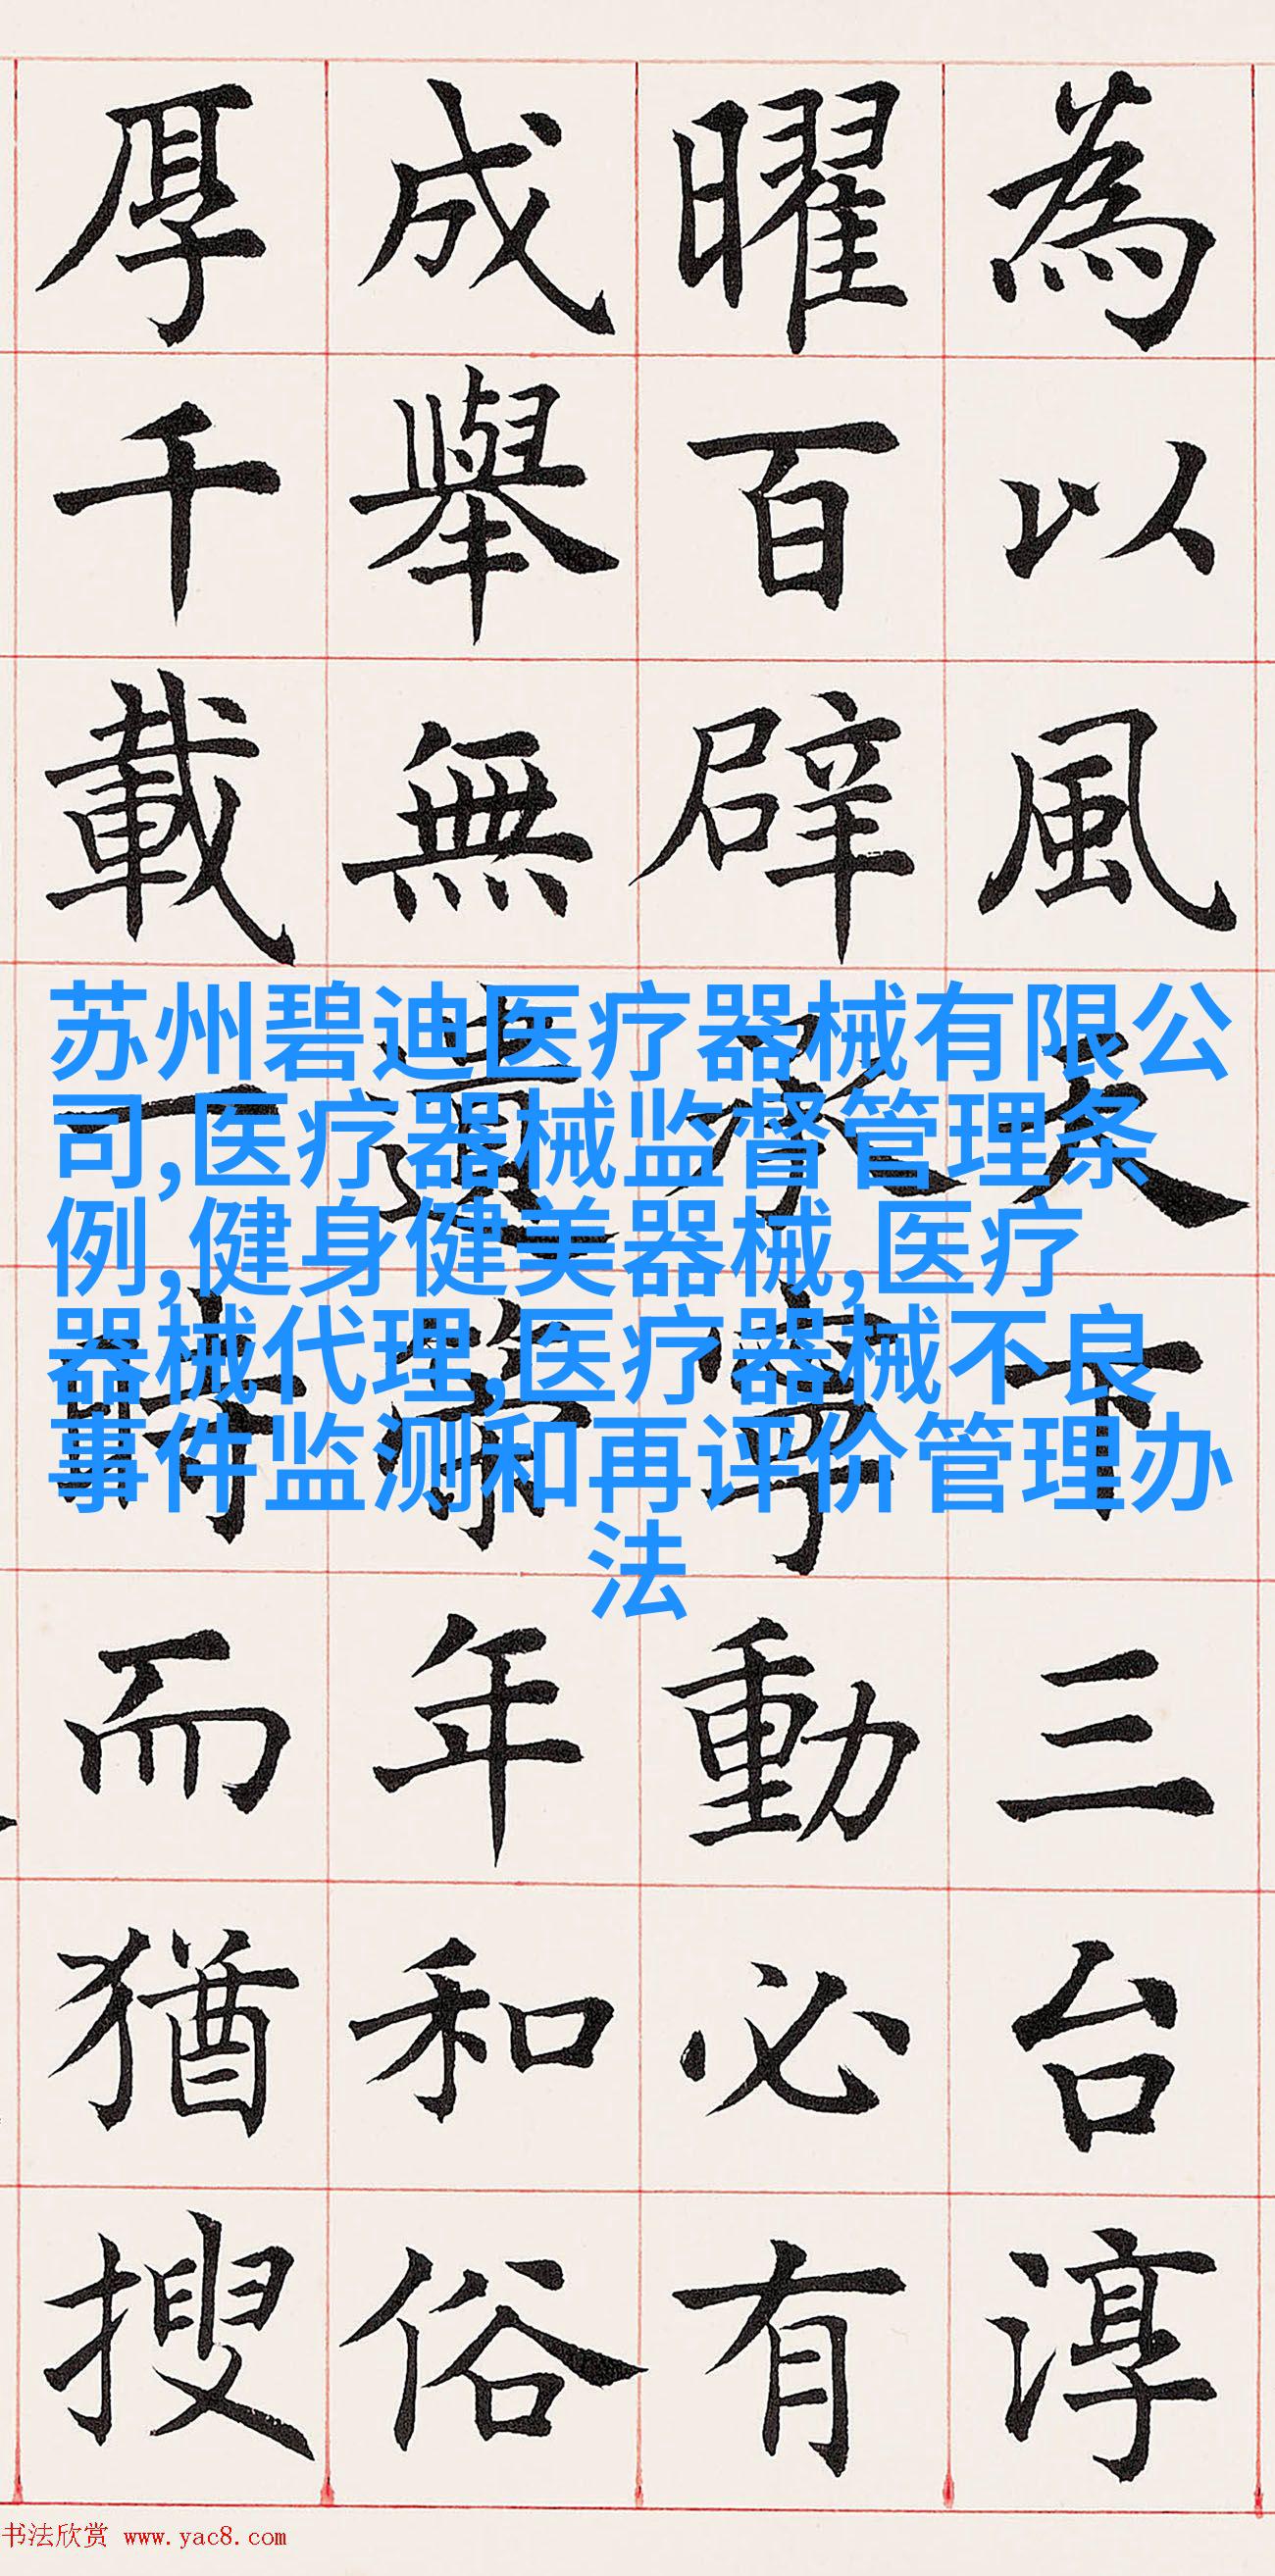 為以風天下三台淳
曜百辟承寧動必有
成舉無遺策年和俗
厚千載一時而猶搜
苏州碧迪医疗器械有限公
司,医疗器械监督管理条
例,健身健美器械,医疗
器械代理,医疗器械不良
事件监测和再评价管理办
法
书法欣赏 www.yac8.com